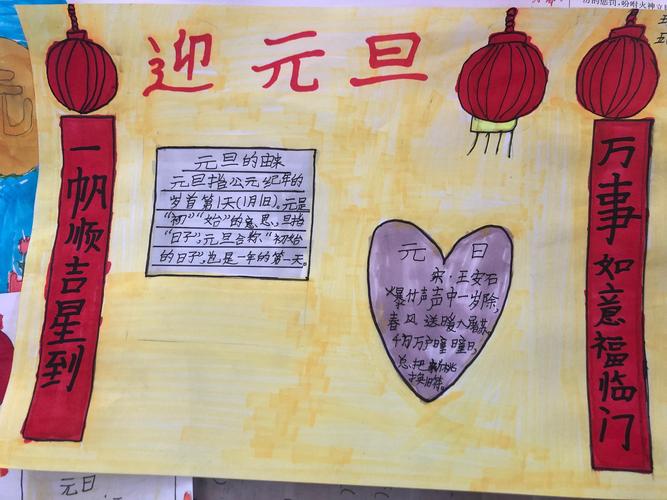 迎元旦
一帆顺吉星到
元旦的由来
元旦指公元纪年的
岁首第1天(1月1日)。元是
"初""始"的意思,旦指
"日子",元旦合称"初始
的日子",也是一年的第一天。
元日
宋·王安石
爆竹声声中一岁除,
春风送暖入屠苏。
千门万户曈曈日,
总把新桃
换旧符。
万事如意福临门
元旦